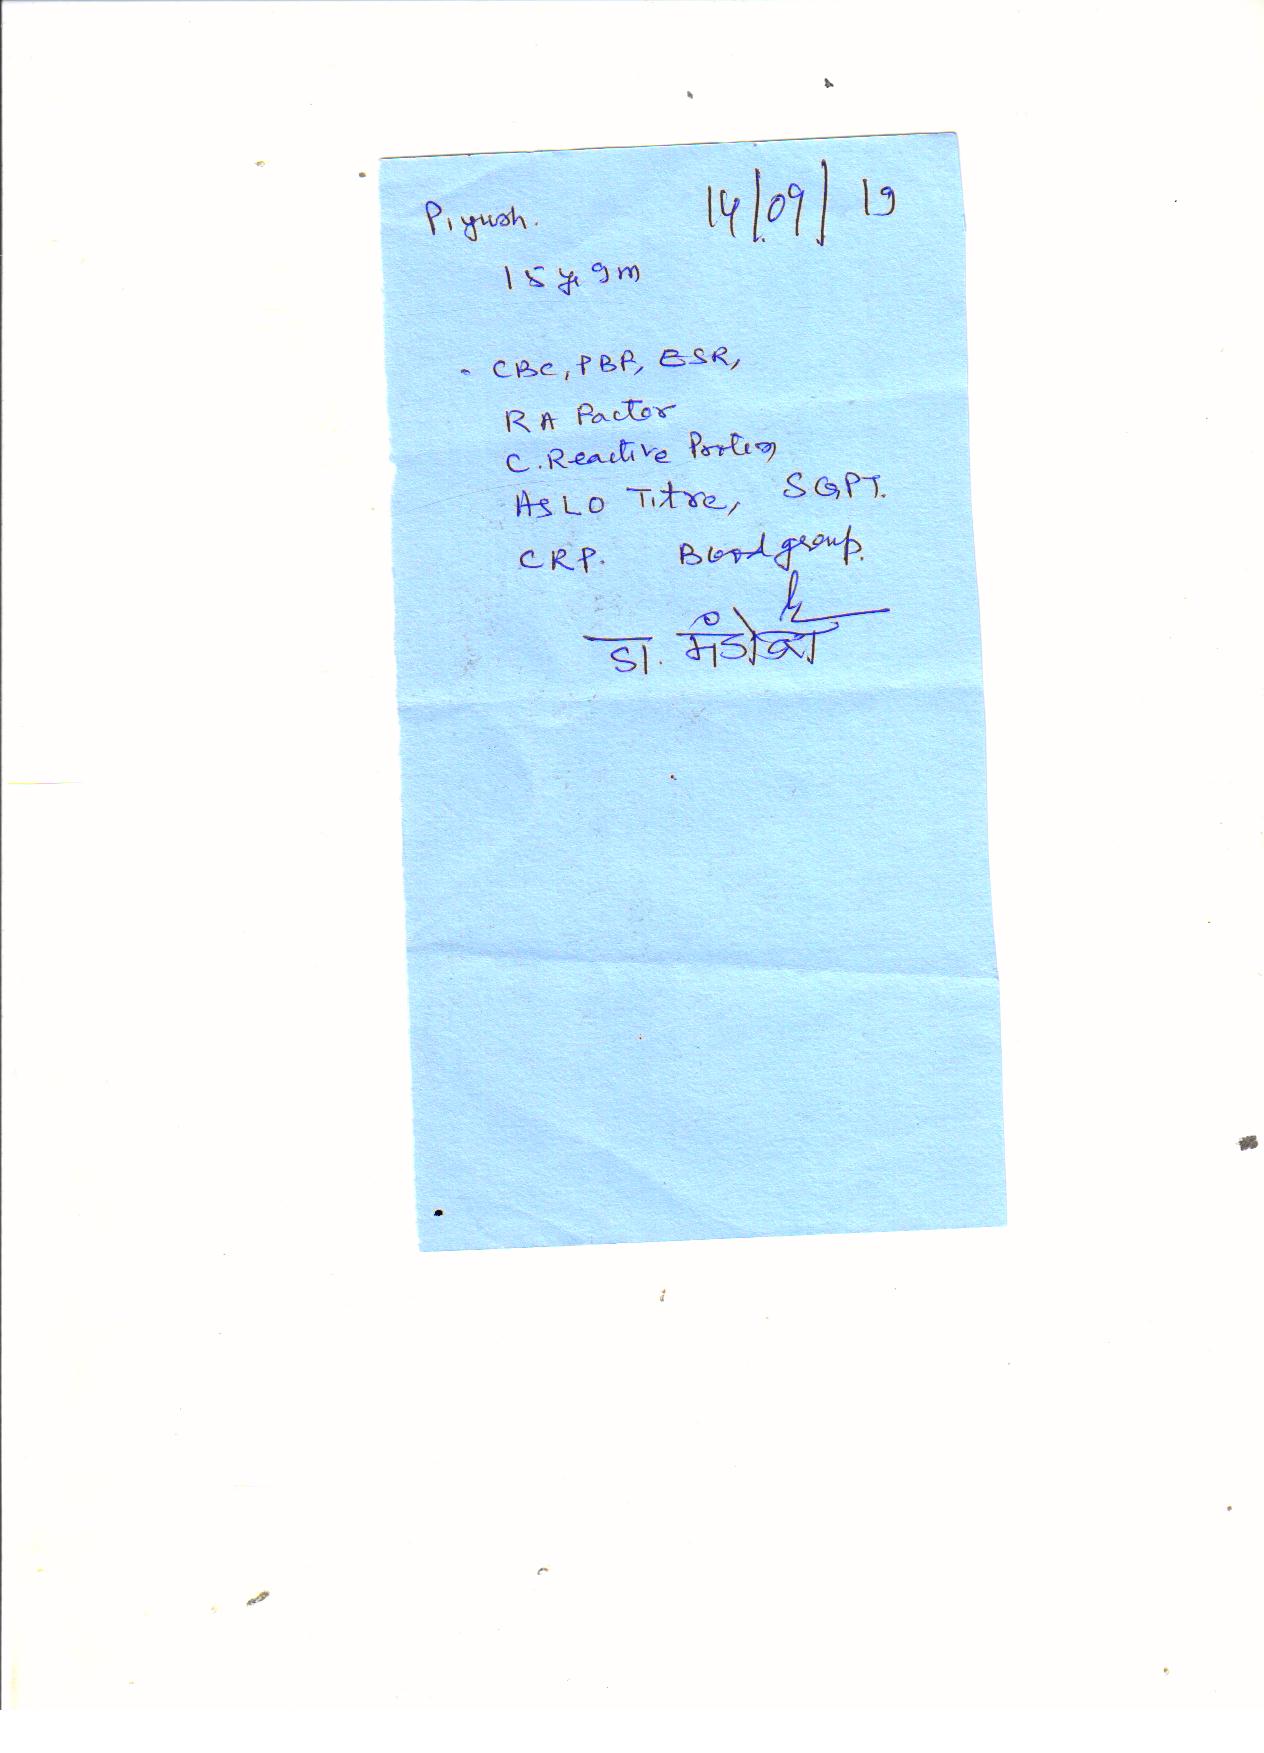 Piyush. 14/09/19
15 yr 9m
CBC, PBF, ESR,
RA Factor
C. Reactive Protein
ASLO Titre, SGPT.
CRP. Blood group.
डा.